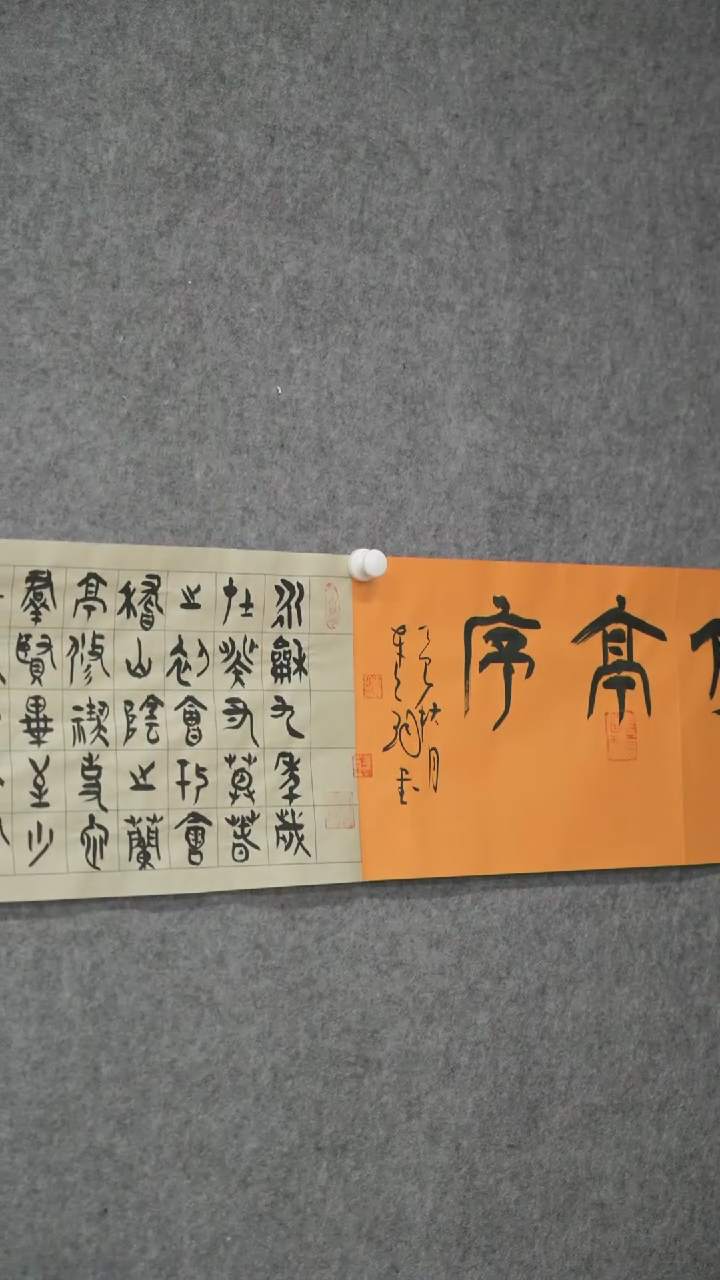 亭序
乙巳秋月
永龢九年歲
在癸丑莫春
之初會于會
稽山陰之蘭
亭修禊事也
羣賢畢至少